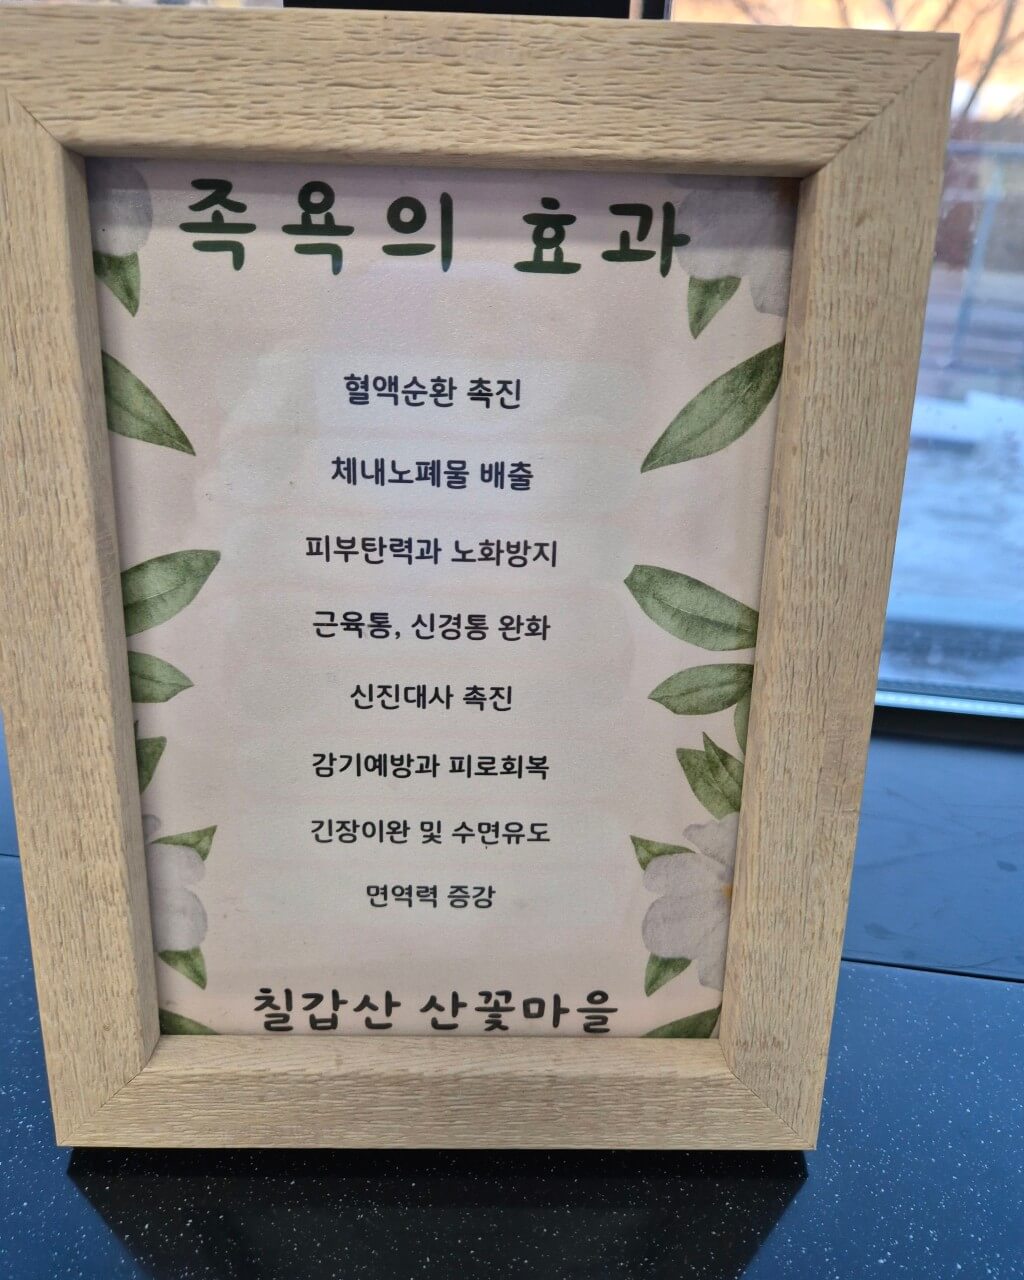 족욕의 효과
혈액순환 촉진
체내노폐물 배출
피부탄력과 노화방지
근육통, 신경통 완화
신진대사 촉진
감기예방과 피로회복
긴장이완 및 수면유도
면역력 증강
칠갑산 산꽃마을